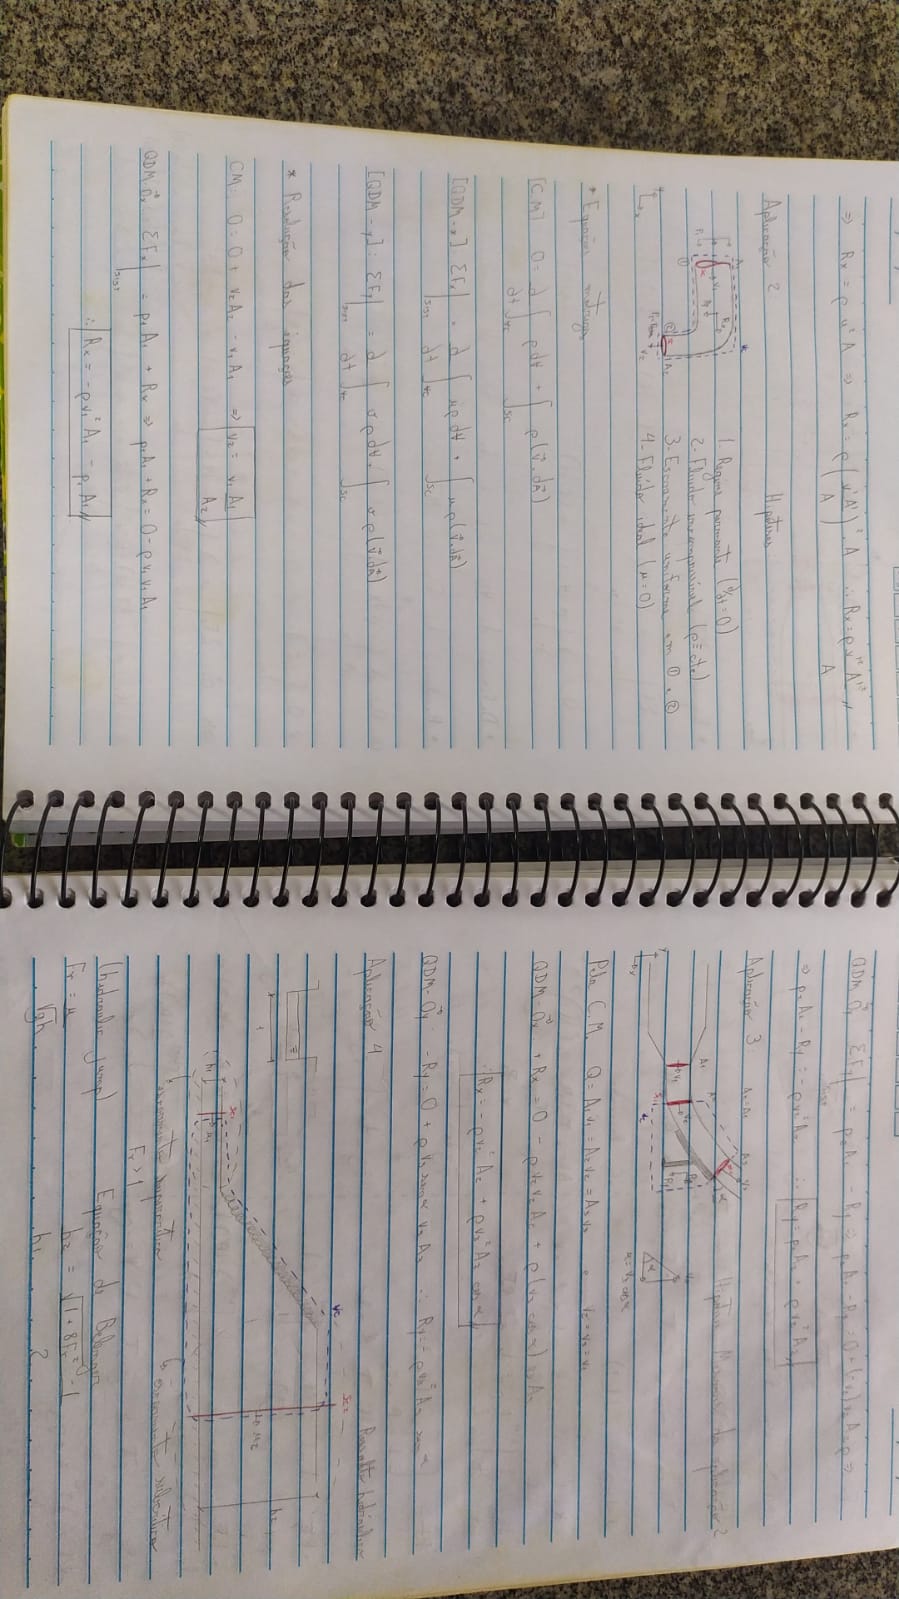 ⇒ Rx = ρ u² A ⇒ Rx = ρ (v'A' / A)² . A ∴ Rx = ρ v'² A'² / A //
Aplicação 2
Hipóteses
1- Regime permanente (∂/∂t = 0)
2- Fluido incompressível (ρ = cte)
3- Escoamento uniforme em ① e ②
4- Fluido ideal (μ = 0)
* Equações
[CM] 0 = ∂/∂t ∫vc ρ d∀ + ∫sc ρ (v⃗.dA⃗)
[QDM - x] ΣFx|sist = ∂/∂t ∫vc u ρ d∀ + ∫sc u ρ (v⃗.dA⃗)
[QDM - y]: ΣFy|sist = ∂/∂t ∫vc σ ρ d∀ + ∫sc σ ρ (v⃗.dA⃗)
* Resolução das equações
CM: 0 = 0 + v2A2 - v1A1 ⇒ v2 = v1A1 / A2 //
QDM 0x⃗: ΣFx|sist = p1A1 + Rx ⇒ p1A1 + Rx = 0 - ρ v1 v1 A1
∴ Rx = - ρ v1² A1 - p1 A1 //
QDM 0y⃗ ΣFy|sist = p2A2 - Ry ⇒ p2A2 - Ry = 0 + (-v2) v2 A2 ρ ⇒
⇒ p2A2 - Ry = - ρ v2² A2 ∴ Ry = p2A2 + ρ v2² A2 //
Aplicação 3
da aplicação 2
u = v3 cos α
Pela C.M. Q = A1v1 = A2v2 = A3v3 e v2 = v3 = v1
QDM 0x⃗: + Rx = 0 - ρ v2 v2 A2 + ρ (v3 cos α) v3 A3
∴ Rx = - ρ v2² A2 + ρ v3² A3 cos α //
QDM 0y⃗ - Ry = 0 + ρ v3 sen α v3 A3 ∴ Ry = - ρ v3² A3 sen α
Aplicação 4
Ressalto hidráulico
vc
sc1
sc2
h1
u1
u2
h2
escoamento supercrítico
escoamento subcrítico
Fr > 1
(hidraulic jump)
Equação de Belanger
Fr = u / √gh
h2 / h1 = √1 + 8Fr² - 1 / 2